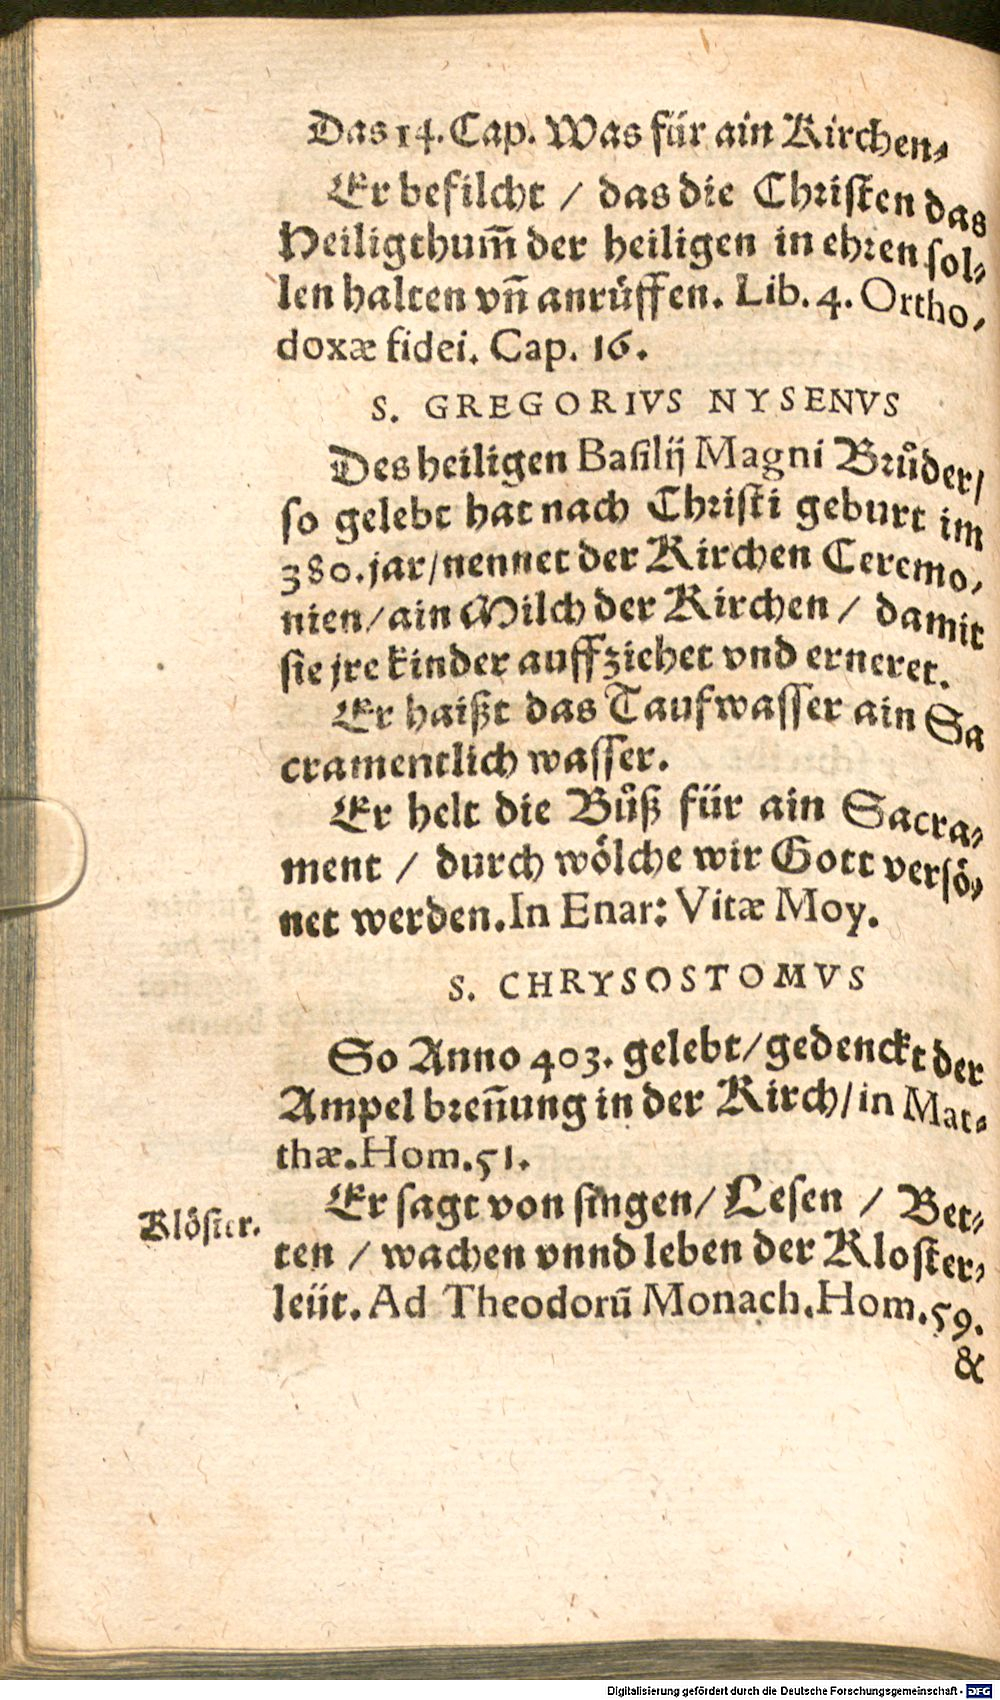 Das 14. Cap. Was für ain Kirchen-
Er befilcht / das die Christen das
Heiligthum̃ der heiligen in ehren sol-
len halten vñ anrüffen. Lib. 4. Ortho-
doxæ fidei. Cap. 16.
S. GREGORIVS NYSENVS
Des heiligen Basilij Magni Brůder/
so gelebt hat nach Christi geburt im
380. jar/nennet der Kirchen Ceremo-
nien/ain Milch der Kirchen / damit
sie jre kinder auffziehet vnd erneret.
Er haißt das Taufwasser ain Sa
cramentlich wasser.
Er helt die Bůß für ain Sacra-
ment / durch wölche wir Gott versö-
net werden. In Enar: Vitæ Moy.
S. CHRYSOSTOMVS
So Anno 403. gelebt/gedenckt der
Ampel breñung in der Kirch/in Mat-
thæ. Hom. 51.
Klöster.
Er sagt von singen/ Lesen / Bet-
ten / wachen vnnd leben der Kloster-
leüt. Ad Theodorū Monach. Hom. 59.
&
Digitalisierung gefördert durch die Deutsche Forschungsgemeinschaft - DFG